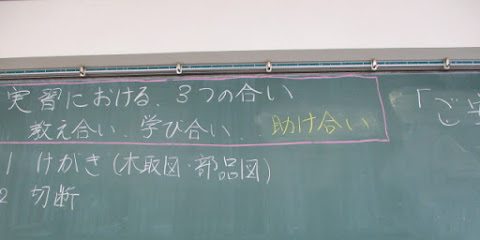 実習における、3つの合い
教え合い、学び合い、助け合い
1 けがき(木取図・部品図)
2 切断
「ご